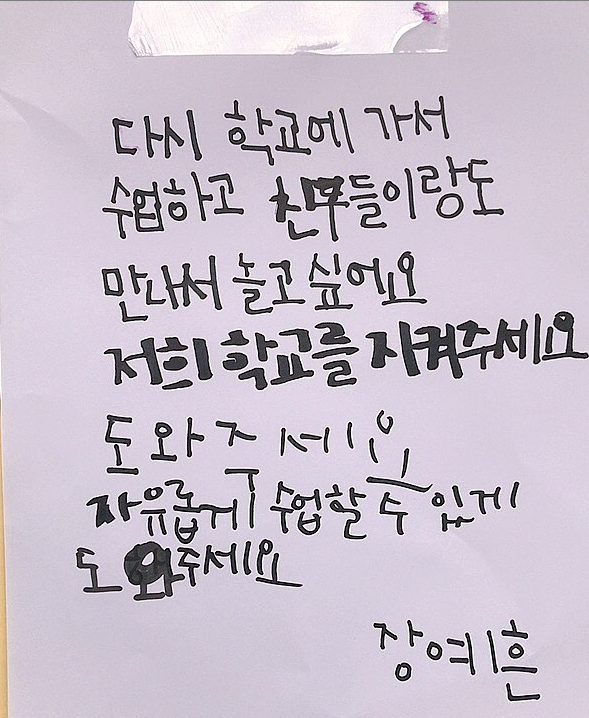 다시 학교에 가서
수업하고 친구들이랑도
만나서 놀고싶어요
저희 학교를 지켜주세요
도와주세요
자유롭게 수업할 수 있게
도와주세요
장예흔